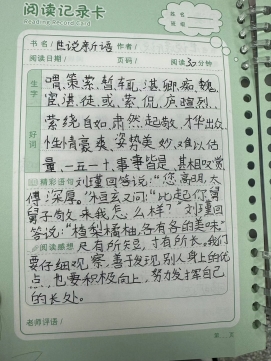 阅读记录卡
READING RECORD CARD
姓名:
班级:
书 名/世说新语 作者/
阅读日期/ 页码/ 阅读30分钟
生字
喟、策、萦、暂、辄、湛、卿、痴、魏、
宦、湛、徒、或、索、侃、庾、暄、烈、
好词
萦绕自如、肃然起敬、才华出众
性情豪爽、姿势美妙、难以估
量、一五一十、事事皆是、其相叹赏
精彩语句 刘瑾回答说:"您高明,太
傅深厚。"又问:"比起你舅
舅子敬来我怎么样?"刘瑾回
答说:"楂梨橘柚,各有各的美味。"
阅读感想 尺有所短,寸有所长。我们
要仔细观察,善于发现别人身上的优
点,也要积极向上,努力发挥自己
的长处。
老师评语/
第 页